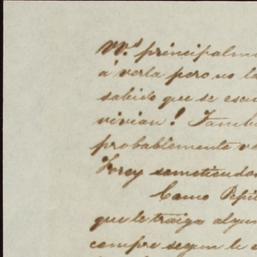 Vds principalm
á verla pero no la
sabido que se es
vivian! Tamb
probablemente v
Forey sometiendo
Como Pepi
que le traiga algun
compre segun le